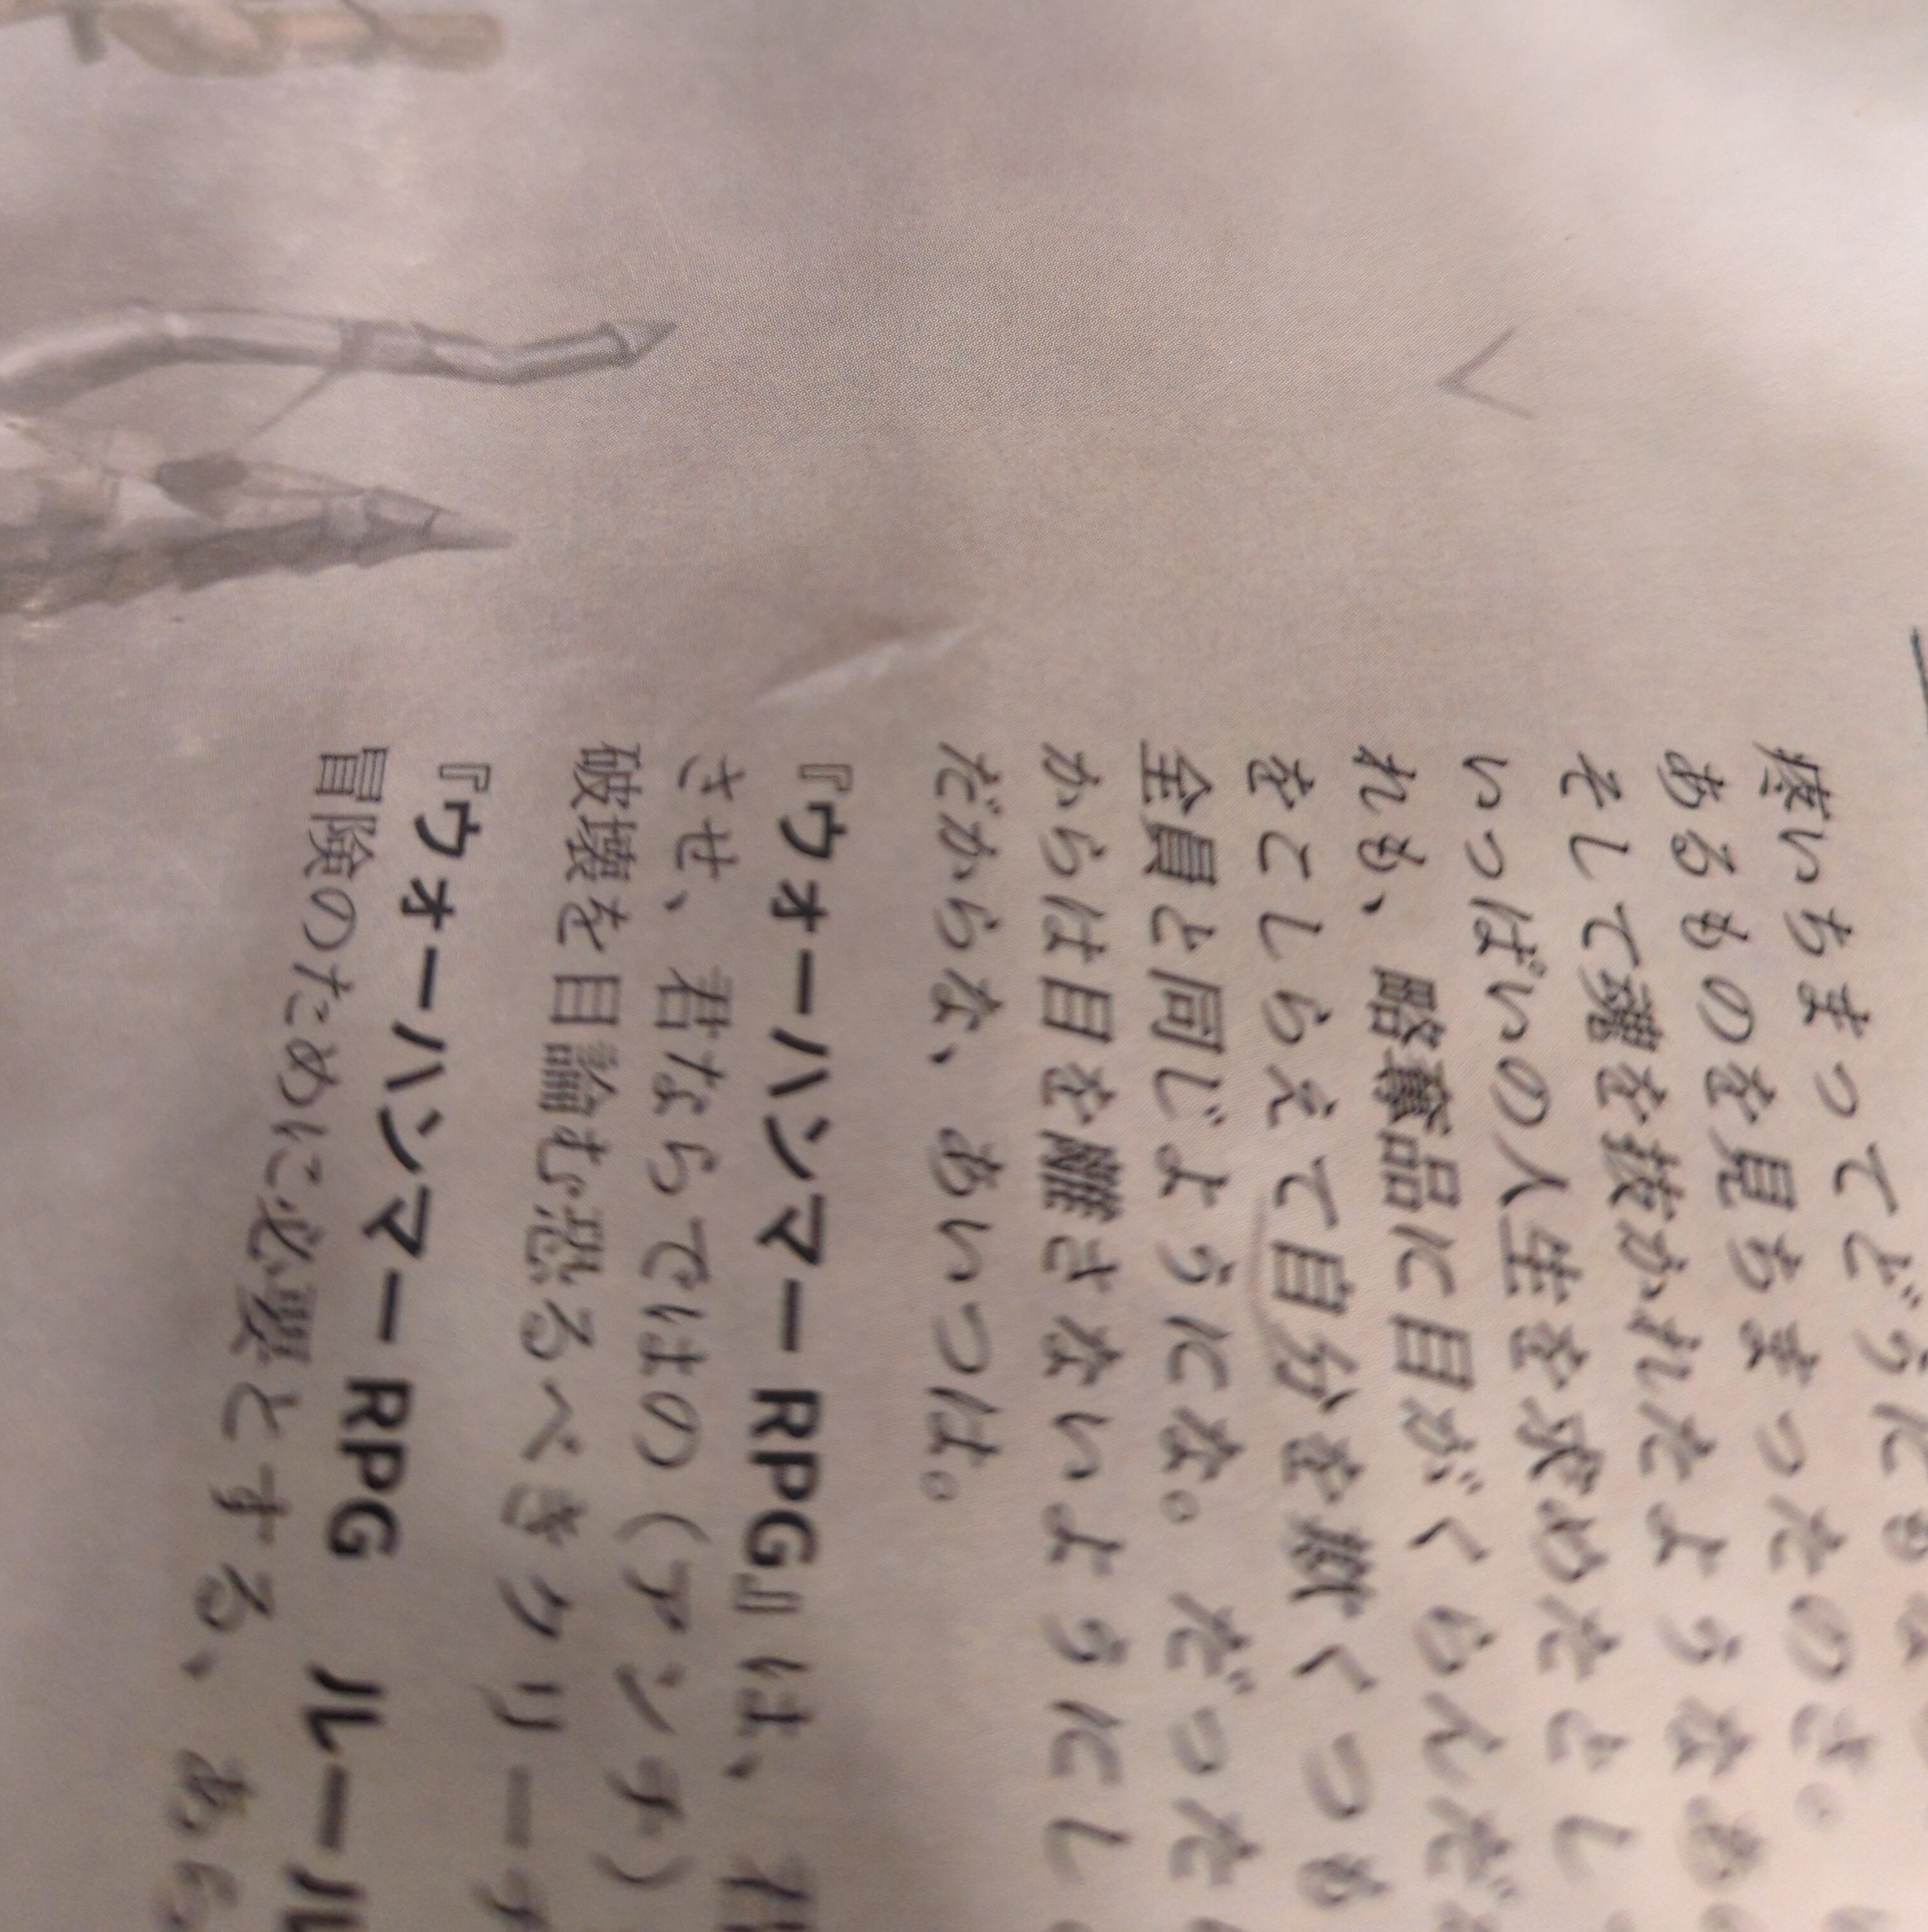 痿いちまってどうにもな
あるものを見ちまったのさ。
そして魂を抜かれたような
いっぱいの人生を求めたとし
れも、略奪品に目がくらんだ
をこしらえて自分を欺くつも
全員と同じようにな。だった
からは目を離さないようにし
だからな、あいつは。
『ウォーハンマーRPG』は、
させ、君ならではの（アンチ）
破壊を目論む恐るべきクリーチ
『ウォーハンマーRPG ルール
冒険のために必要とする、あら